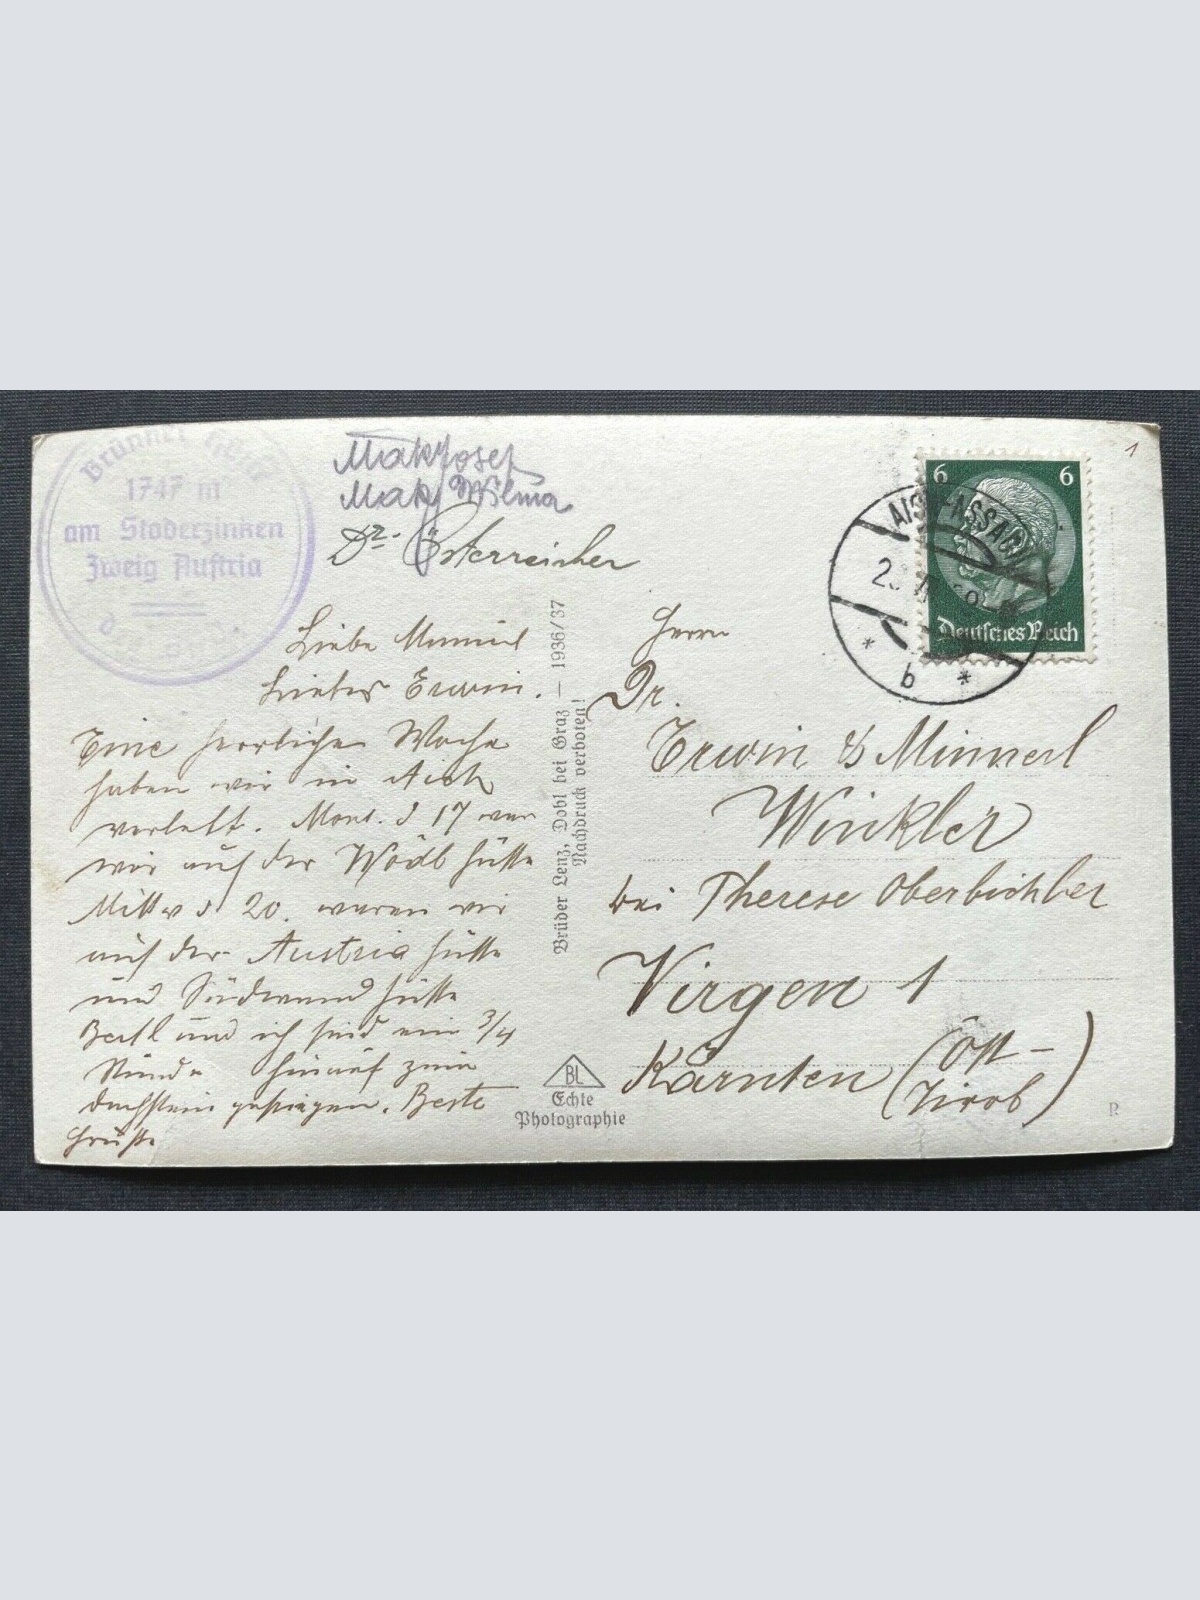 Brünner Hütte
1747 m
am Stoderzinken
Zweig Austria
Mak Josef
Mak Wilma
Dr. Österreicher
Liebe Minnerl
Lieber Erwin.
Eine herrliche Woche
haben wir in Aich
verlebt. Mont. d 17 waren
wir auf der Wödl hütte
Mittw d 20. waren wir
auf der Austria hütte
und Südwand hütte
Bertl und ich sind ein 3/4
Stunde hinauf zum
Dachstein gestiegen. Beste
Grüße
Brüder Lenz, Dobl bei Graz — 1936/37
Nachdruck verboten!
BL
Echte
Photographie
6 6
Deutsches Reich
AICH-ASSACH
* b *
1
Herrn
Dr.
Erwin & Minnerl
Winkler
bei Therese Oberbichler
Virgen 1
Kärnten (Ost-
Tirol)
R